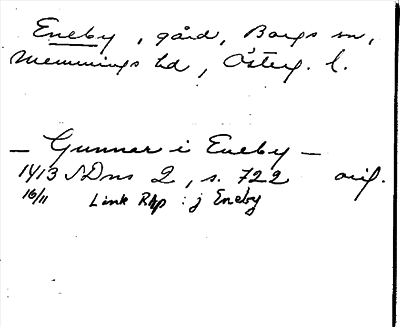 Eneby, gård, Borgs sn,
Memmings hd, Österg. l.
— Gunnar i Eneby —
1413 SDns 2, s. 722 orig.
16/11 Link Rhp : j Eneby